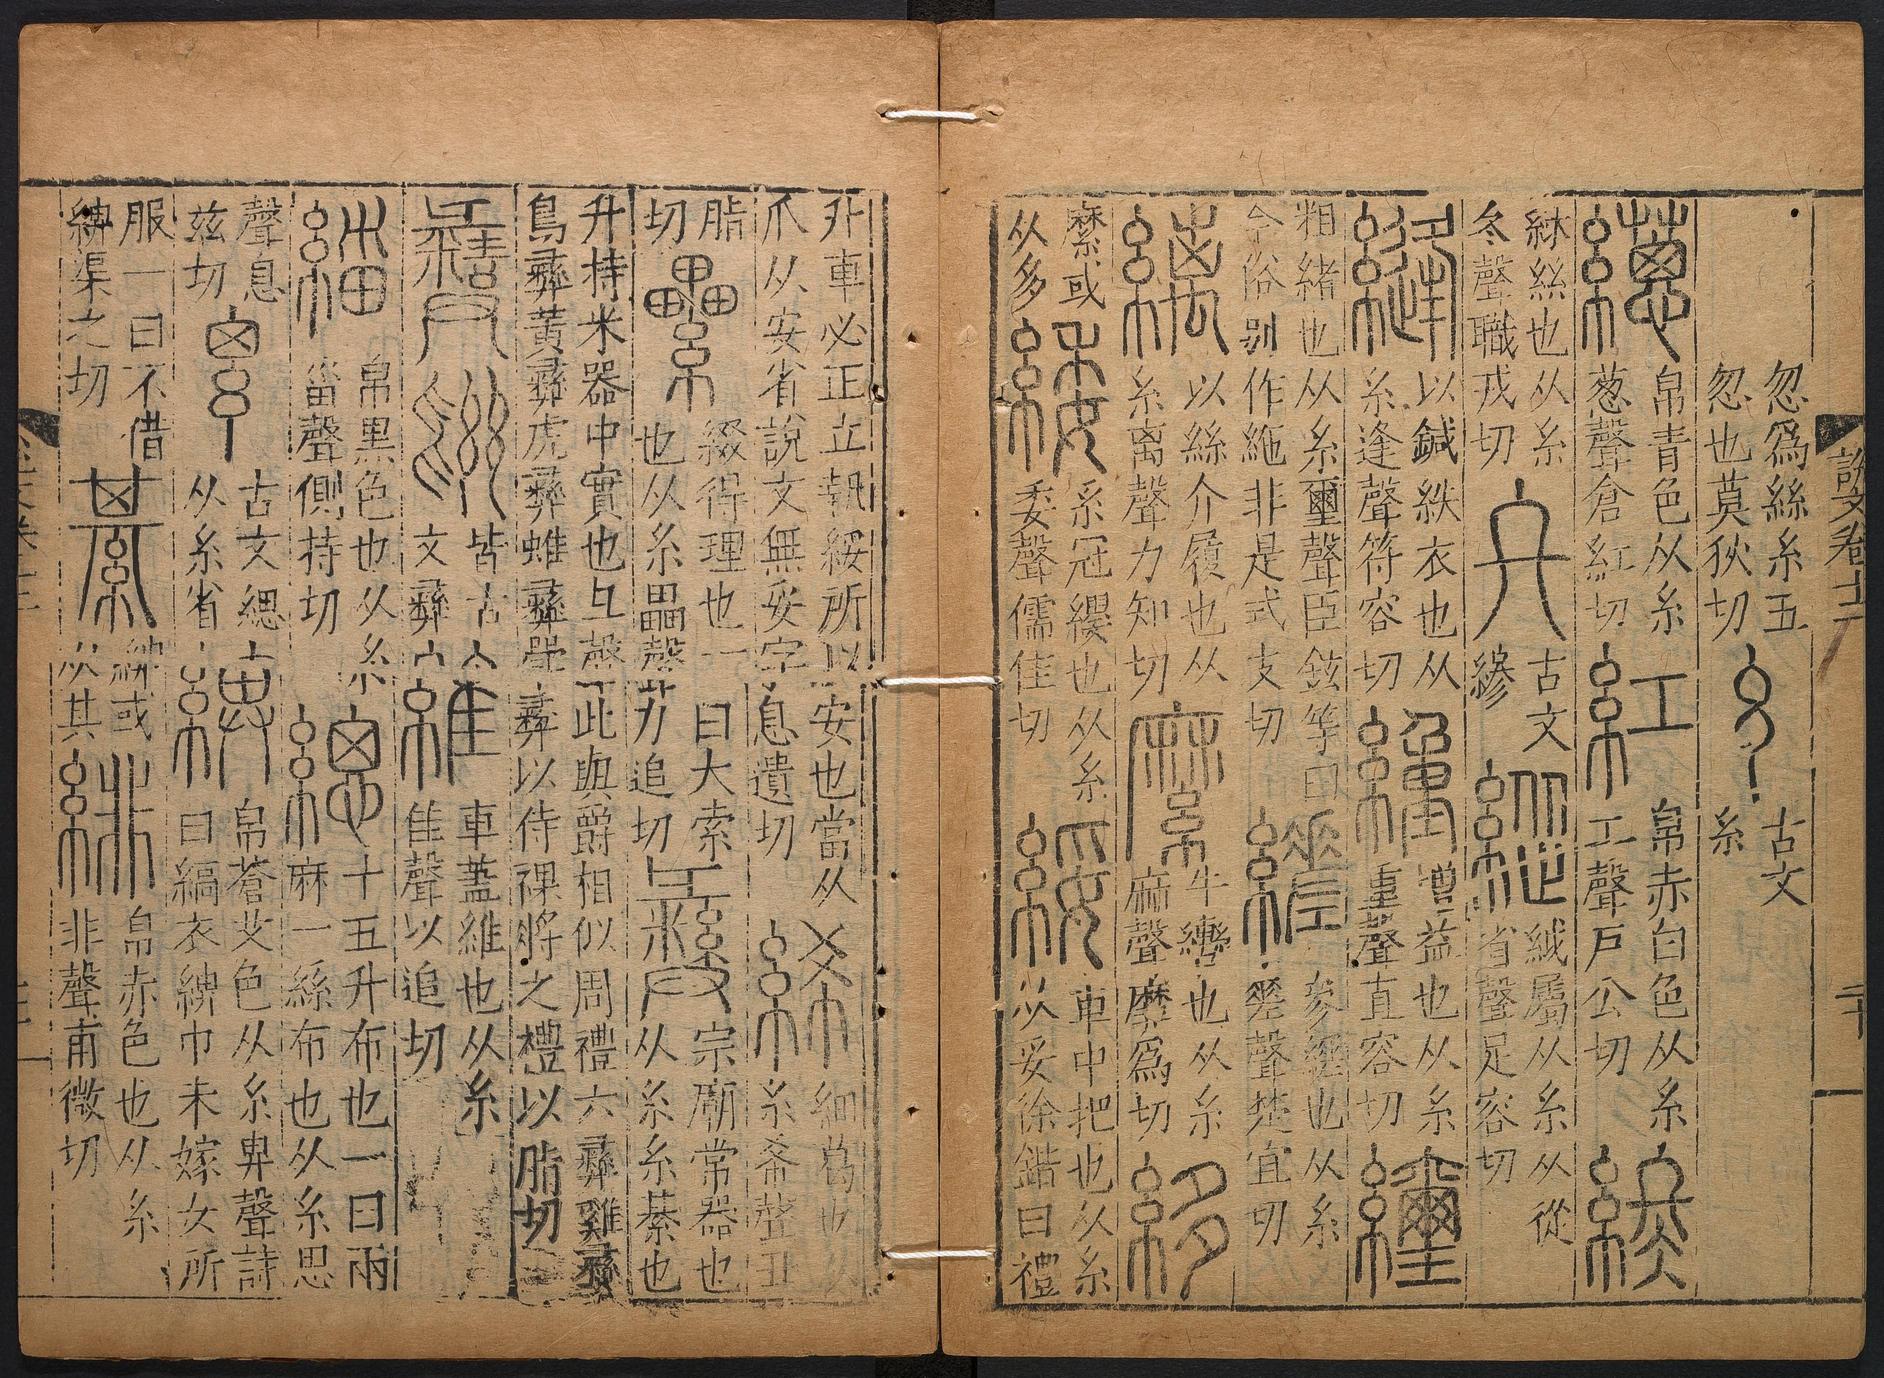 說文卷十三
二十一
忽爲絲糸五
忽也莫狄切
糸
古文
糸
繱
帛青色从糸
葱聲倉紅切
紅
帛赤白色从糸
工聲戶公切
終
絿絲也从糸
冬聲職戎切
古文
縱
絨屬从糸从從
省聲足容切
縫
以鍼紩衣也从
糸逢聲符容切
緟
增益也从糸
重聲直容切
粗緒也从糸璽聲臣鉉等曰
今俗别作絁非是式支切
縒
參縒也从糸
差聲楚宜切
縭
以絲介履也从
糸离聲力知切
縻
牛轡也从糸
麻聲靡爲切
縻或
从多
緌
系冠纓也从糸
委聲儒佳切
綏
車中把也从糸
从妥徐鍇曰禮
升車必正立執綏所以安也當从
爪从安省說文無妥字息遺切
絺
細葛也从
糸希聲丑
脂
切
纍
綴得理也一曰大索
也从糸畾聲力追切
彝
宗廟常器也
从糸糸綦也
廾持米器中實也彑聲此與爵相似周禮六彝雞彝
鳥彝黃彝虎彝蜼彝斝彝以侍祼將之禮以脂切
皆古
文彝
維
車蓋維也从糸
隹聲以追切
緇
帛黑色也从糸
甾聲側持切
緦
十五升布也一曰兩
麻一絲布也从糸思
聲息
兹切
古文緦
从糸省
綼
帛蒼艾色从糸畀聲詩
曰縞衣綼巾未嫁女所
服一曰不借
綼渠之切
綼或
从其
緋
帛赤色也从糸
非聲甫微切